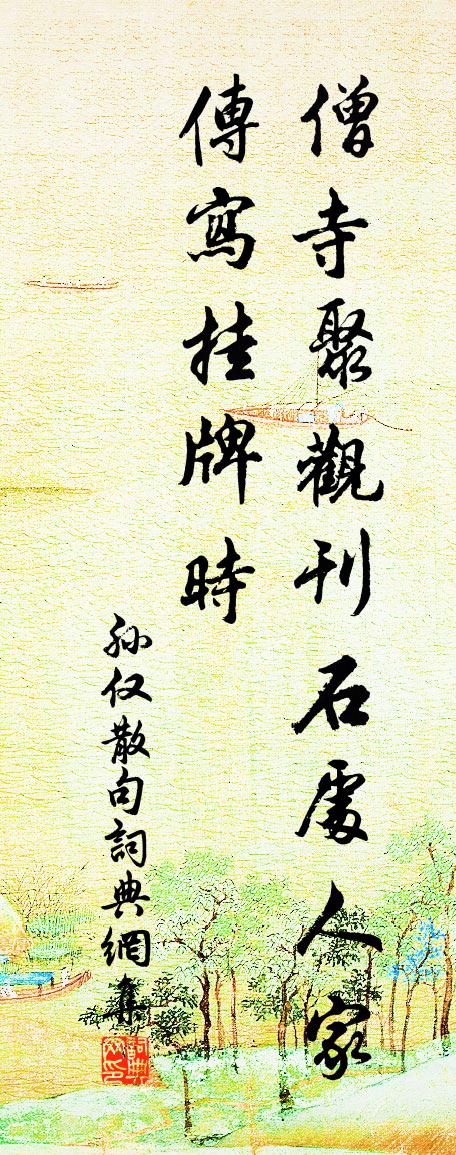 僧寺聚觀刊石處人家
傳寫挂牌時
孫仅散句詞典網集